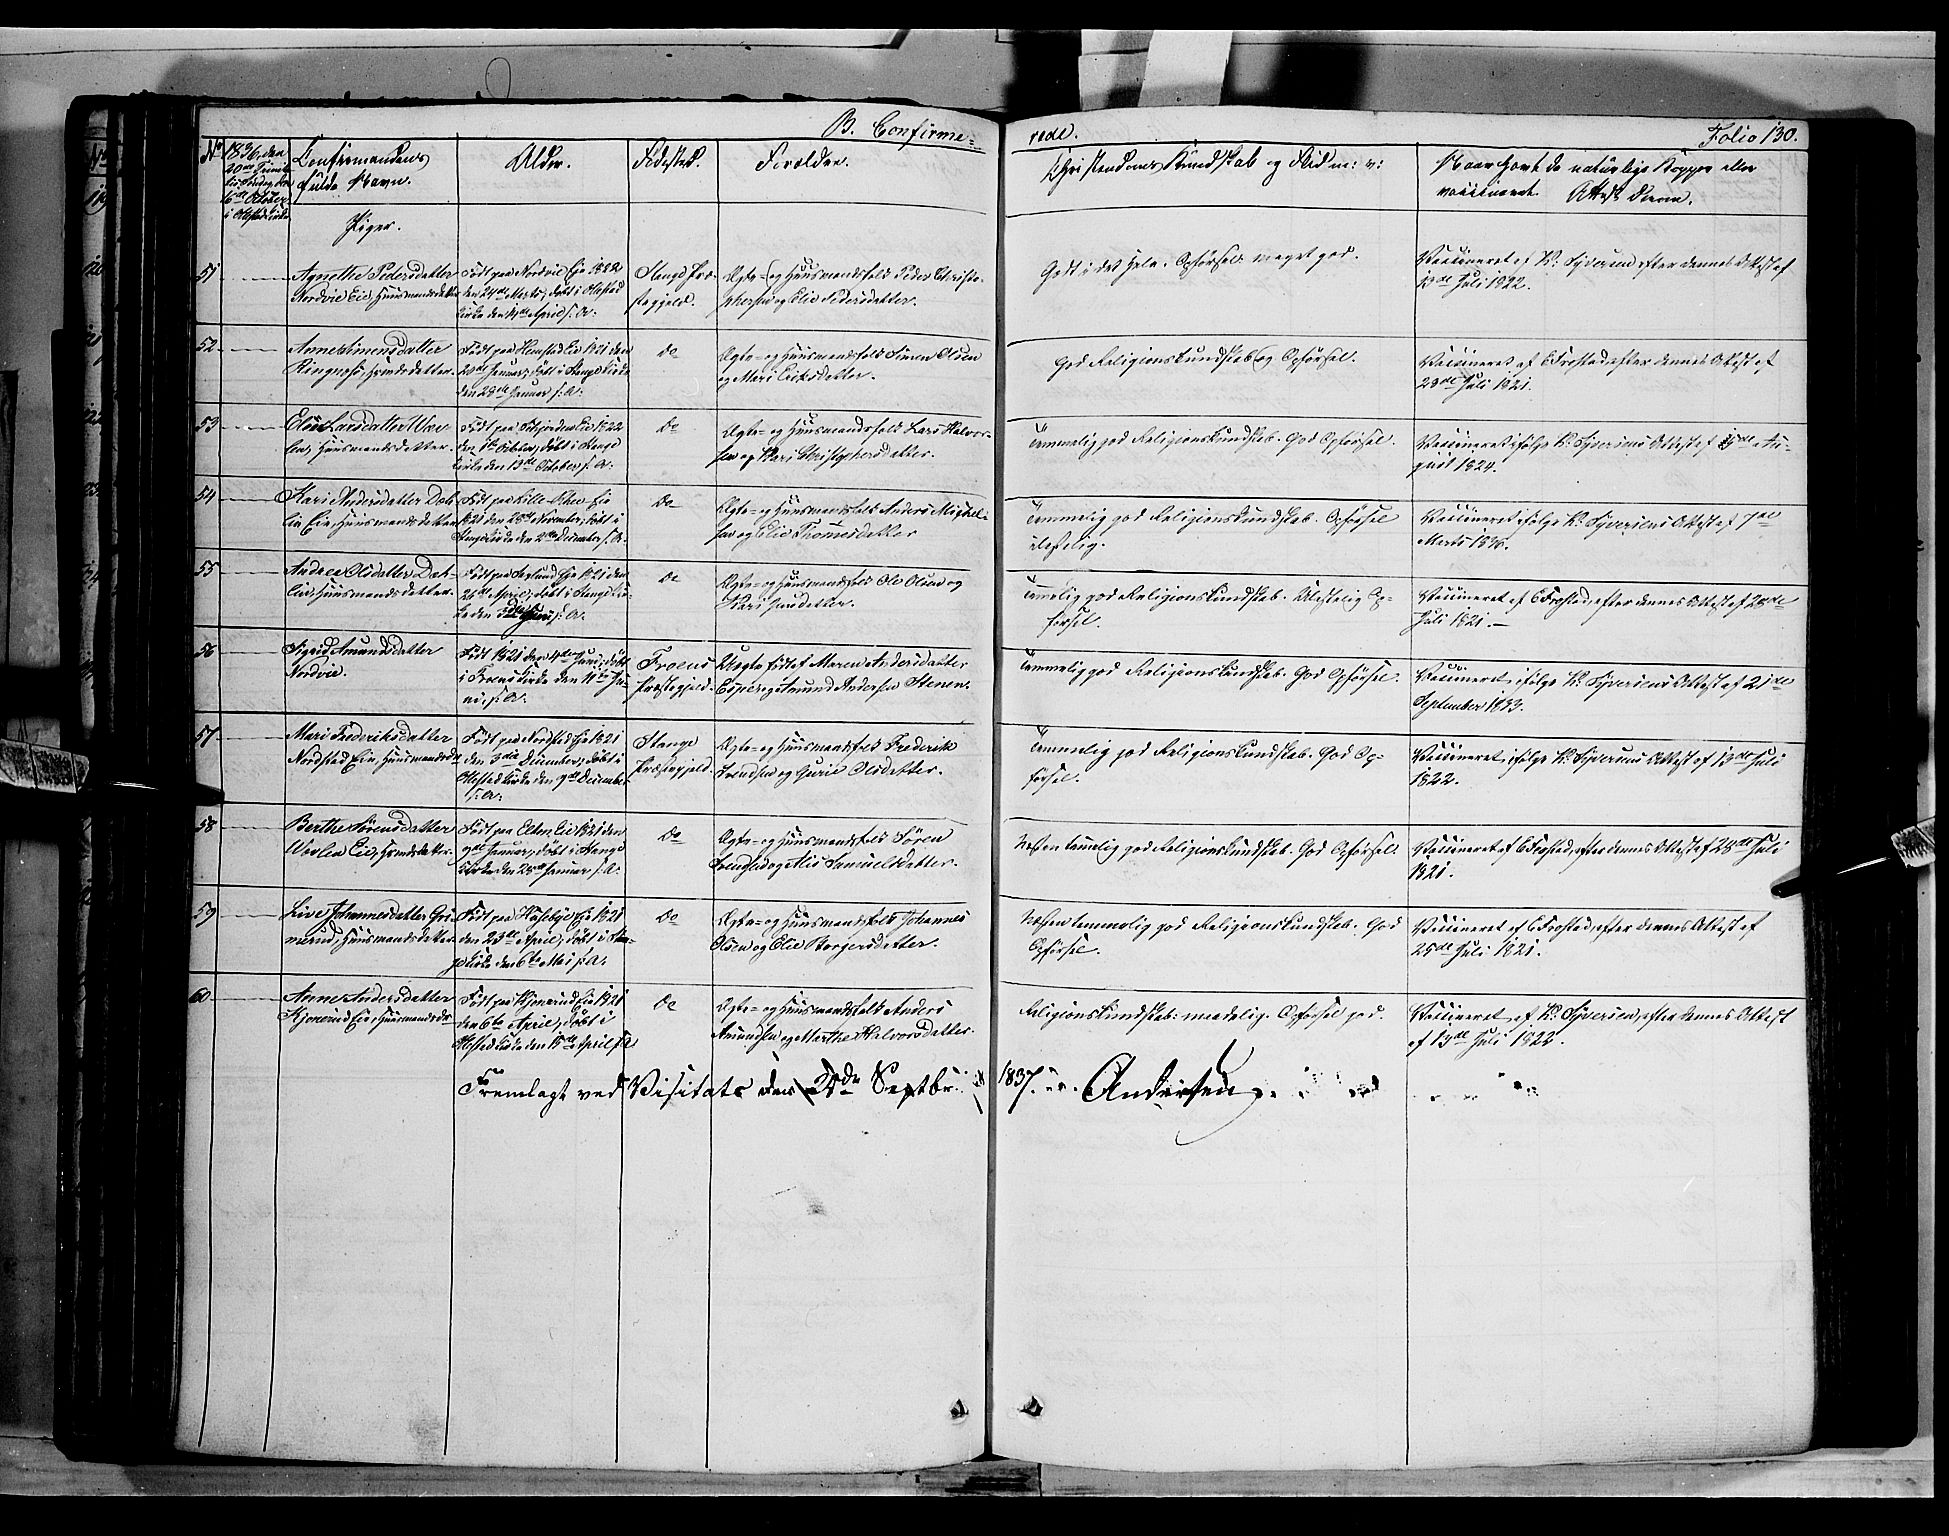 B. Confirme-
rede.
Folio 130.
No
1836, den
20de Trinit.
16de October
i Ottestad Kirke
Confirmandens
fulde Navn.
Alder.
Fødested.
Forældre.
Christendoms Kundskab og Flid m: v:
Naar havt de naturlige Kopper eller
vaccineret. Attest derom.
Piger.
51
Agnethe Pedersdatter
Nordvie Eie, Huusmandsdatter
Født paa Nordvie Eie 1822
den 24de Marts, døbt i Ottestad
Kirke den 14de April s: A:
Stange Præ-
stegjeld.
Ægte- og Huusmandsfolk Peder Christo-
phersen og Elie Pedersdatter.
Godt i det Hele. Opførsel meget god.
Vaccineret af K: Syversen, efter dennes Attest af
13de Juli 1822.
52
Anne Simensdatter
Ringnæs, Huusmdsdatter.
Født paa Hemstad Eie 1821 den
20de Januar, døbt i Stange Kirke
den 28de Januar s: A:
do
Ægte- og Huusmandsfolk Simen Olsen
og Mari Eriksdatter.
God Religionskundskab og Opførsel.
Vaccineret af C Frostad, efter dennes Attest af
28de Juli 1821.
53
Elie Larsdatter Wæe-
len, Huusmandsdatter.
Født paa Eie 1822
den October, døbt i Stange
Kirke den 13de October s: A:
do
Ægte- og Huusmandsfolk Lars Halvor-
sen og Kari Christophersdatter.
Temmelig god Religionskundskab. God Opførsel.
Vaccineret ifølge K. Syversens Attest af Au-
gust 1824.
54
Kari Andersdatter Dæh-
lin Eie, Huusmandsdatter
Født paa Lille- Eie
1821 den 28de November, døbt i
Stange Kirke den 2den December s: A:
do
Ægte- og Huusmandsfolk Anders Michel-
sen og Elie Thomesdatter
Temmelig god Religionskundskab. Opførsel
ulastelig.
Vaccineret ifølge K. Syversens Attest af 7de
Marts 1836.
55
Andrea Olsdatter Dæh-
lin, Huusmandsdatter.
Født paa Eie 1821 den
26de April, døbt i Stange Kir-
ke den s: A:
do
Ægte- og Huusmandsfolk Ole Olsen og
Kari
Temmelig god Religionskundskab. Ulastelig Op-
førsel.
Vaccineret af C Frostad, efter dennes Attest af 28de
Juli 1821. —
56
Sigrid Amundsdatter
Nordvie.
Født 1821 den 4de Juni, døbt
i Froens Kirke den 11te Ju-
ni, s: A:
Froens
Præstegjeld.
Uægte født af Maren Andersdatter
Espen og Amund Andersen Stenen.
Temmelig god Religionskundskab. God Opførsel.
Vaccineret ifølge K. Syversens Attest af 21de
September 1833.
57
Mari Frederiksdatter
Nordstad Eie, Huusmandsdr
Født paa Nordstad Eie 1821
den 3die December, døbt i
Ottestad Kirke den 9de December
s: A:
Stange
Præstegjeld.
Ægte- og Huusmandsfolk Frederik
og Gurie Olsdatter.
Temmelig god Religionskundskab. God Op-
førsel.
Vaccineret, ifølge K. Syversens Attest af 13de Juli
1822.
58
Berthe Sørensdatter
Wælen Eie, Husmdsdatter.
Født paa Elton Eie 1821 den
9de Januar, døbt i Stange
Kirke den 28de Januar s: A:
do
Ægte- og Huusmandsfolk Søren
og Samuelsdatter.
Næsten temmelig god Religionskundskab. God Opførsel.
Vaccineret af C Frostad, efter dennes Attest af 28de Juli
1821.
59
Live Johannesdatter Gri-
merud, Huusmandsdatter
Født paa Huseby Eie 1821
den 23de April, døbt i Stan-
ge Kirke den 6te Mai s: A:
do
Ægte- og Huusmandsfolk Johannes
Olsen og Elie Borgersdatter.
Næsten temmelig god Religionskundskab. God
Opførsel.
Vaccineret af C Frostad, efter dennes Attest af
25de Juli 1821.
60
Anne Andersdatter
Kjonerud Eie, Huusmandsdr
Født paa Kjonerud Eie 1821
den 6te April, døbt i
Ottestad Kirke den 15de April s: A
do
Ægte- og Huusmandsfolk Anders
Amundsen og Marthe Halvorsdatter.
Religionskundskab maadelig. Opførsel god.
Vaccineret af K. Syversen, efter dennes Attest
af 13de Juli 1822.
Fremlagt ved Visitats den Septbr. 1837. Andersen